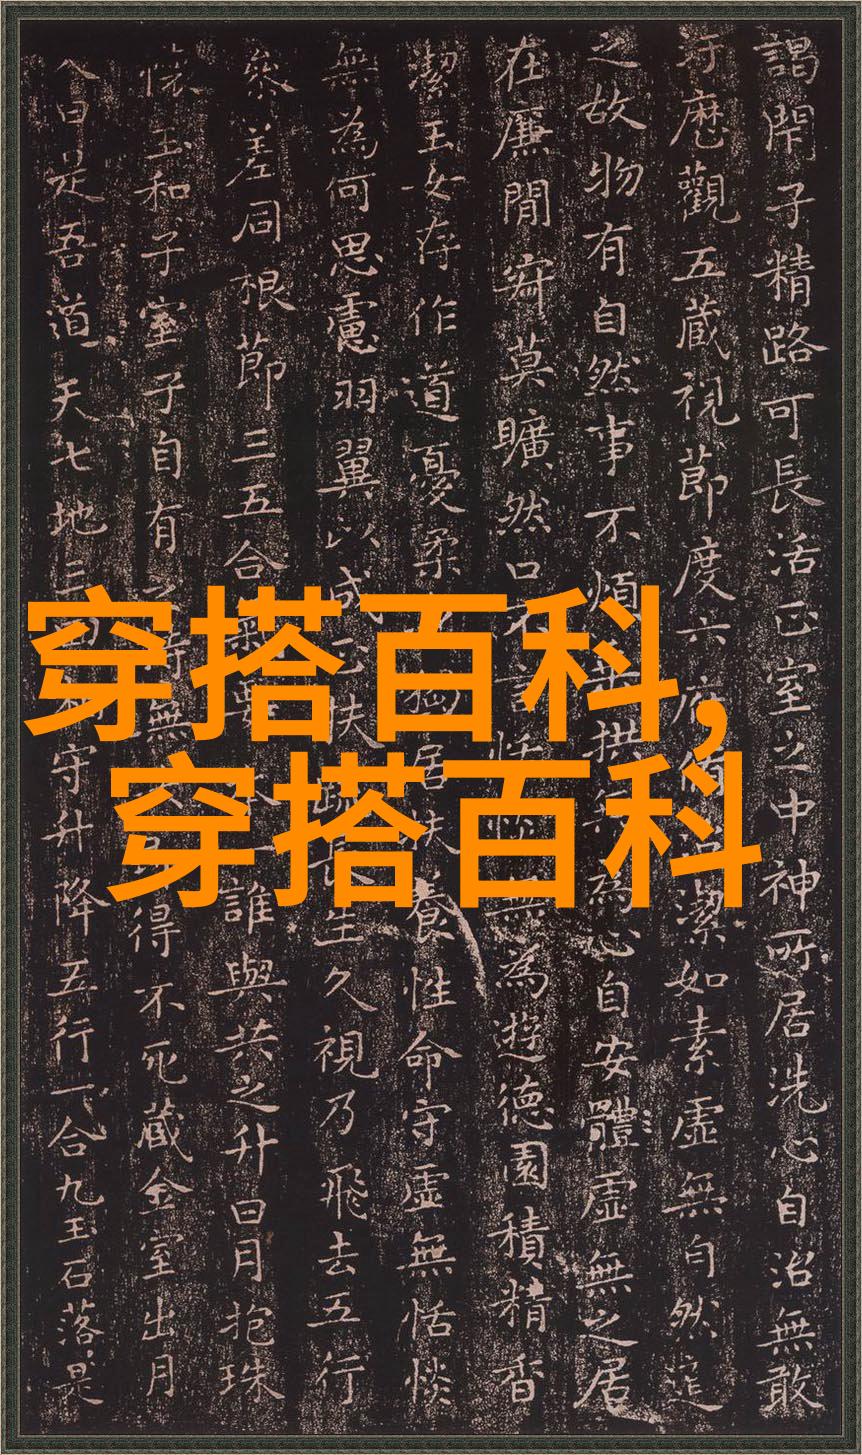 謁閇子精路可長活正室之中神所居洗心自治無敢
汙歷觀五藏視節度六府脩治潔如素虛無自然道
之故物有自然事不煩拱無為心自安體虛無之居
在廉閒寂莫曠然口不言恬無為遊德園積精香
潔玉女存作道憂柔獨居扶養性命守虛無恬惔
無為何思慮羽翼以成正扶疏長生久視乃飛去五行
參差同根節三五合氣要本一誰與共之升日月抱珠
懷玉和子室子自有持無得不死藏金室出月
入日是吾道天七地三守升降五行一合九玉石落是
穿搭百科,
穿搭百科